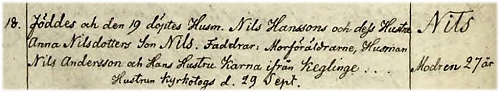 18. Föddes och den 19 döptes Husm. Nils Hanssons och dess Hustru Nils
Anna Nilsdotters Son Nils. Faddrar: Morföräldrarne, Husman
Nils Andersson och Hans Hustru Karna ifrån Keglinge... Modren 27 år
Hustrun Kyrkotogs d. 29 Sept.